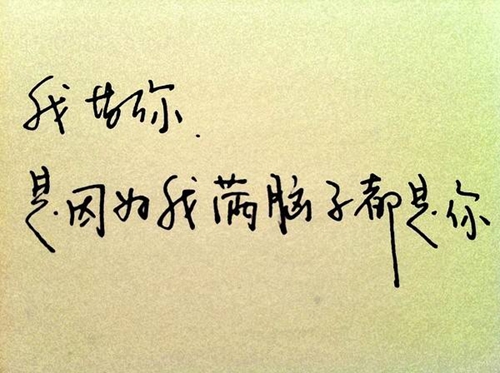 我甘你.
是因为我满脑子都是你